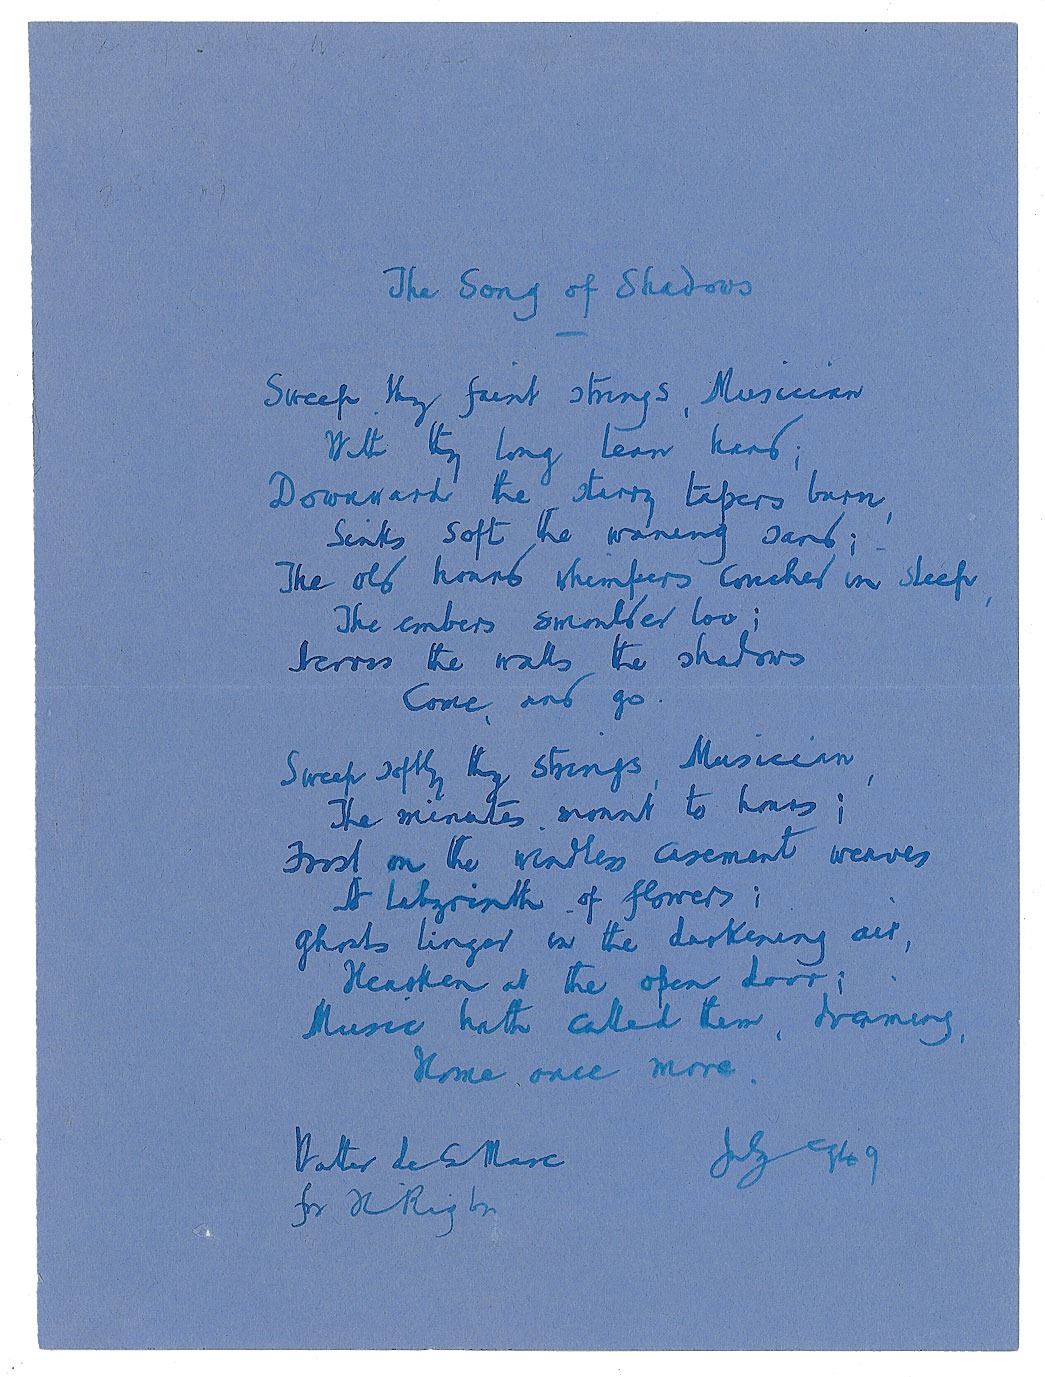 The Song of Shadows
Sweep thy faint strings, Musician
With thy long lean hand;
Downward the starry tapers burn,
Sinks soft the waning sand;
The old hound whimpers couched in sleep,
The embers smoulder low;
Across the walls the shadows
Come, and go.
Sweep softly thy strings, Musician,
The minutes mount to hours;
Frost on the windless casement weaves
A labyrinth of flowers;
Ghosts linger in the darkening air,
Hearken at the open door;
Music hath called them, dreaming,
Home once more.
Walter de la Mare July 1949
for H Rigby